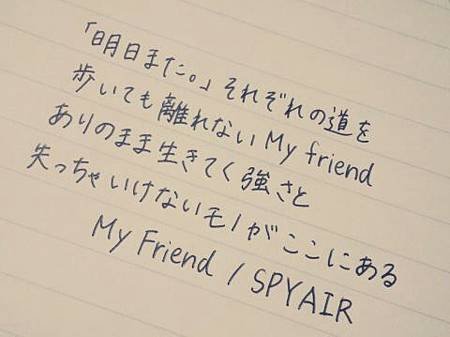 「明日また。」それぞれの道を
歩いても離れないMy friend
ありのまま生きてく強さと
失っちゃいけないモノがここにある
My Friend / SPYAIR